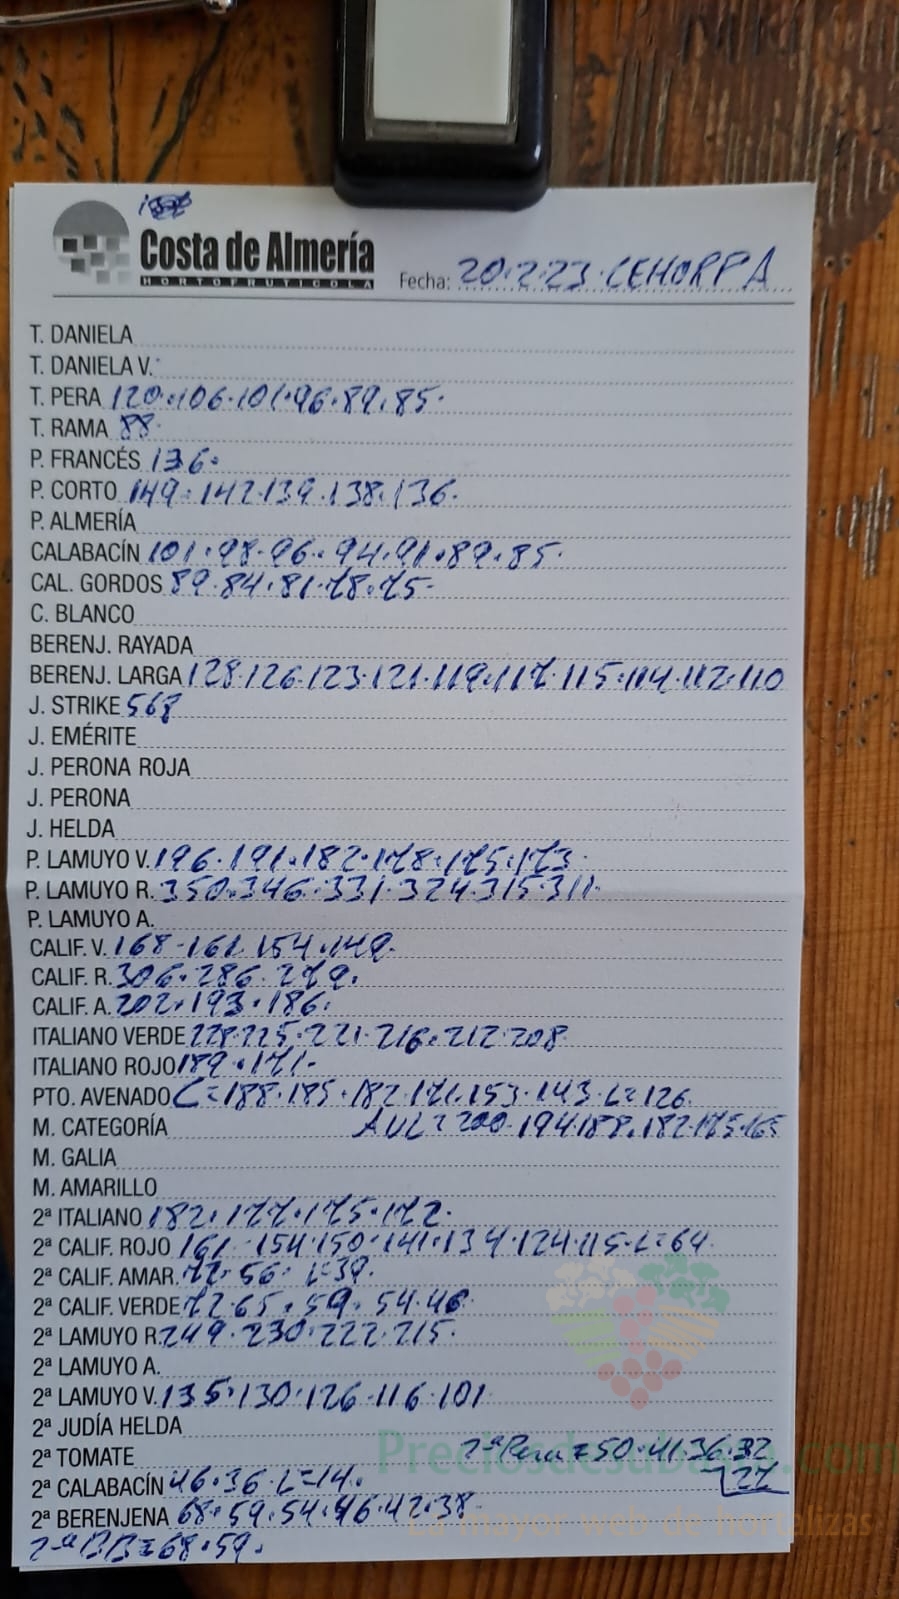 Costa de Almería
HORTOFRUTICOLA
Fecha: 20·2·23·CEHORPA
T. DANIELA
T. DANIELA V.
T. PERA 120·106·101·96·89·85·
T. RAMA 88·
P. FRANCÉS 136·
P. CORTO 149·142·139·138·136·
P. ALMERÍA
CALABACÍN 101·98·96·94·91·89·85·
CAL. GORDOS 89·84·81·78·75·
C. BLANCO
BERENJ. RAYADA
BERENJ. LARGA 128·126·123·121·119·117·115·114·112·110
J. STRIKE 568
J. EMÉRITE
J. PERONA ROJA
J. PERONA
J. HELDA
P. LAMUYO V. 196·191·182·178·175·173·
P. LAMUYO R. 350·346·331·324·315·311·
P. LAMUYO A.
CALIF. V. 168·161·154·149·
CALIF. R. 306·286·279·
CALIF. A. 202·193·186·
ITALIANO VERDE 228·225·221·216·212·208
ITALIANO ROJO 189·171·
PTO. AVENADO C=188·185·182·171·153·143·L=126
M. CATEGORÍA AUL=200·194·188·182·175·165
M. GALIA
M. AMARILLO
2ª ITALIANO 182·177·175·172·
2ª CALIF. ROJO 161·154·150·141·134·124·115·L=64
2ª CALIF. AMAR. 72·56·L=39·
2ª CALIF. VERDE 72·65·59·54·46
2ª LAMUYO R. 249·230·222·215·
2ª LAMUYO A.
2ª LAMUYO V. 135·130·126·116·101
2ª JUDÍA HELDA
2ª TOMATE 2ªPera=50·41·36·32
27
Preciosdesubasta.com
2ª CALABACÍN 46·36·L=14·
2ª BERENJENA 68·59·54·46·42·38
La mayor web de hortalizas
2ªBB=68·59·